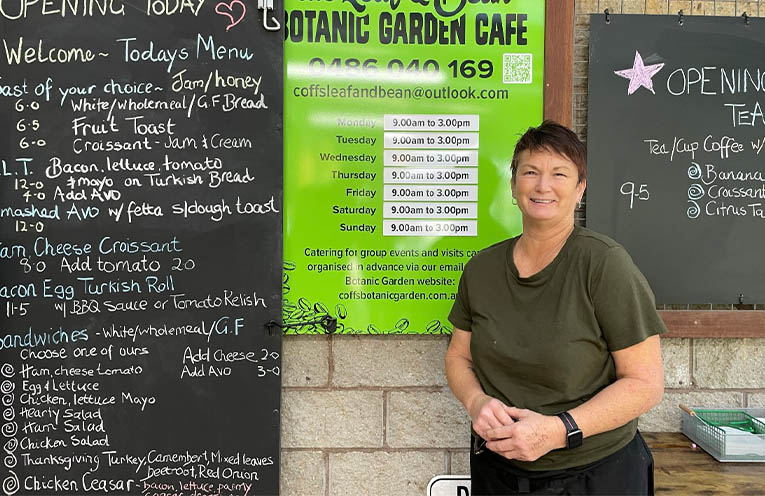 OPENING TODAY
Welcome~ Todays Menu
oast of your choice~ Jam/honey
6-0 White/wholemeal/G.F Bread
6-5 Fruit Toast
6-0 Croissant - Jam & Cream
L.T. Bacon, lettuce, tomato
12-0 & mayo on Turkish Bread
4-0 Add Avo
mashad Avo w/fetta s/dough toast
12-0
am Cheese Croissant
8-0 Add tomato 2-0
acon Egg Turkish Roll
11-5 w/ BBQ sauce or Tomato Relish
andwiches - white/wholemeal/G.F
Choose one of ours Add Cheese 2-0
Ham, cheese tomato Add Avo 3-0
Egg & lettuce
Chicken, lettuce Mayo
Hearty Salad
Ham Salad
Chicken Salad
Thanksgiving Turkey, Camembert, Mixed leaves
beetroot, Red Onion
Chicken Ceasar - bacon, lettuce, parmy
The Leaf & Bean
BOTANIC GARDEN CAFE
0486 040 169
coffsleafandbean@outlook.com
Monday 9.00am to 3.00pm
Tuesday 9.00am to 3.00pm
Wednesday 9.00am to 3.00pm
Thursday 9.00am to 3.00pm
Friday 9.00am to 3.00pm
Saturday 9.00am to 3.00pm
Sunday 9.00am to 3.00pm
Catering for group events and visits ca
organised in advance via our email
Botanic Garden website:
coffsbotanicgarden.com.a
OPENING
TEA
Tea/Cup Coffee w/
9-5
Banana
Croissant
Citrus Ta